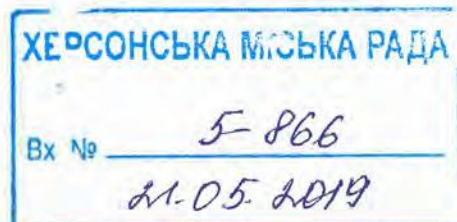 ХЕРСОНСЬКА МІСЬКА РАДА
Вх № 5-866
21.05.2019